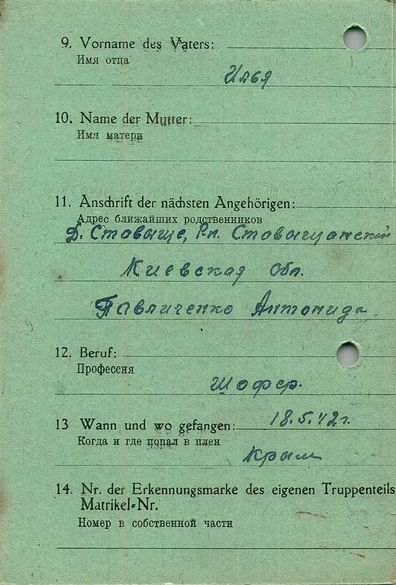 9. Vorname des Vaters:
Имя отца
Илья
10. Name der Mutter:
Имя матери
11. Anschrift der nächsten Angehörigen:
Адрес ближайших родственников
Д. Ставыще, Рн. Ставыщанский
Киевская Обл.
Павличенко Антонида.
12. Beruf:
Профессия
Шофер.
13 Wann und wo gefangen: 18.5.42г.
Когда и где попал в плен
Крым
14. Nr. der Erkennungsmarke des eigenen Truppenteils
Matrikel-Nr.
Номер в собственной части